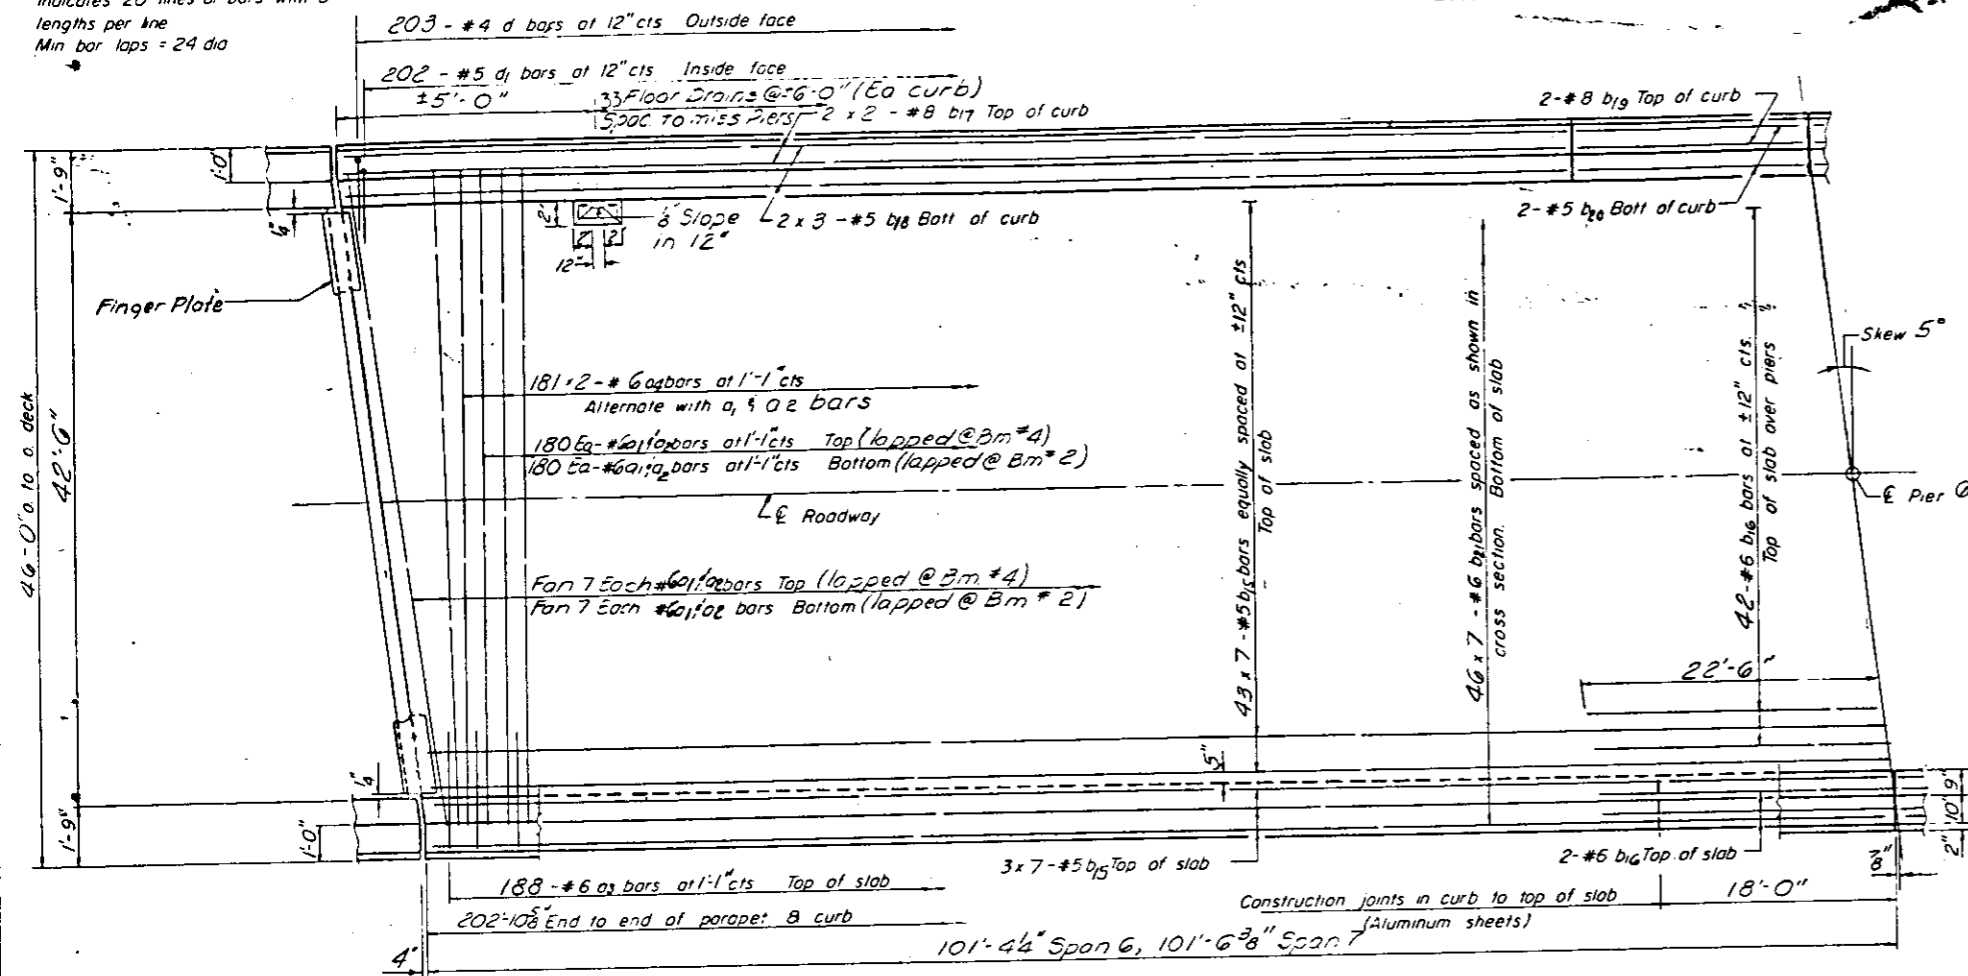 lengths per line
Min bar laps = 24 dia
203 - #4 d bars at 12" cts Outside face
202 - #5 d1 bars at 12" cts Inside face
±5'-0"
33 Floor Drains @ ±6'-0" (Ea curb)
Spac. to miss Piers
2 x 2 - #8 b17 Top of curb
2-#8 b19 Top of curb
1'-9"
1'-0"
1/4"
2"
1/8" Slope
in 12"
2 x 3 - #5 b18 Bott of curb
2-#5 b20 Bott of curb
2" 2"
12"
Finger Plate
Skew 5°
46'-0" o. to o. deck
42'-6"
181 x 2 - #6 a4 bars at 1'-1" cts
Alternate with a1 & a2 bars
180 Ea - #6 a1 & a2 bars at 1'-1" cts Top (lapped @ Bm #4)
180 Ea - #6 a1 & a2 bars at 1'-1" cts Bottom (lapped @ Bm #2)
℄ Roadway
℄ Pier
Fan 7 Each #6 a1 & a2 bars Top (lapped @ Bm. #4)
Fan 7 Each #6 a1 & a2 bars Bottom (lapped @ Bm #2)
43 x 7 - #5 b15 bars equally spaced at ±12" cts
Top of slab
46 x 7 - #6 b21 bars spaced as shown in
cross section. Bottom of slab
42-#6 b16 bars at ±12" cts.
Top of slab over piers
22'-6"
5"
1/4"
1'-9"
1'-0"
9"
10"
2"
7/8"
3 x 7 - #5 b15 Top of slab
2-#6 b16 Top of slab
188 - #6 a3 bars at 1'-1" cts Top of slab
202'-10 5/8" End to end of parapet & curb
Construction joints in curb to top of slab
(Aluminum sheets)
18'-0"
4"
101'-4 1/4" Span 6, 101'-6 3/8" Span 7